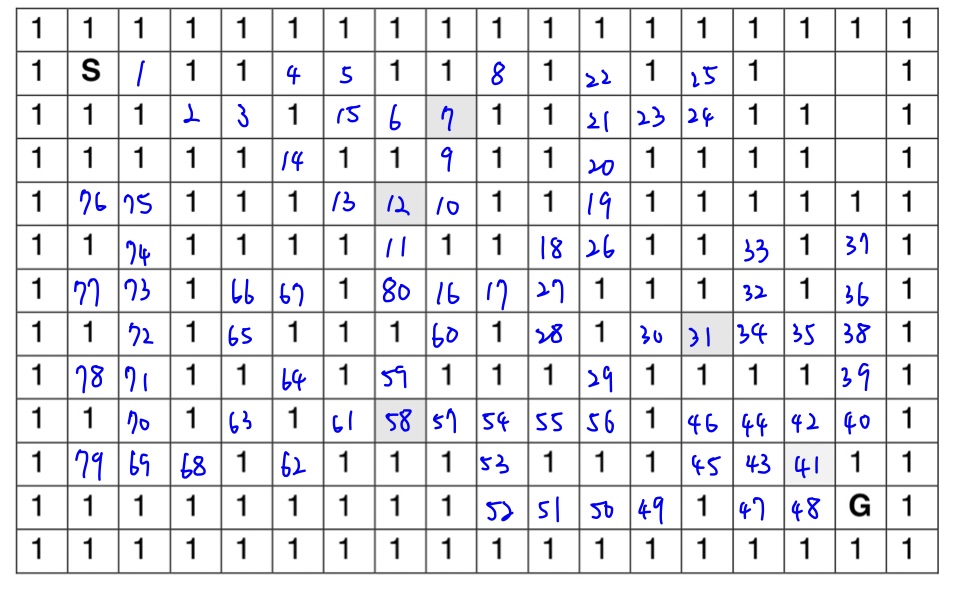 1 1 1 1 1 1 1 1 1 1 1 1 1 1 1 1 1 1
1 S 1 1 1 4 5 1 1 8 1 22 1 25 1 1
1 1 1 2 3 1 15 6 7 1 1 21 23 24 1 1 1
1 1 1 1 1 14 1 1 9 1 1 20 1 1 1 1 1
1 76 75 1 1 1 13 12 10 1 1 19 1 1 1 1 1 1
1 1 74 1 1 1 1 11 1 1 18 26 1 1 33 1 37 1
1 77 73 1 66 67 1 80 16 17 27 1 1 1 32 1 36 1
1 1 72 1 65 1 1 1 60 1 28 1 30 31 34 35 38 1
1 78 71 1 1 64 1 59 1 1 1 29 1 1 1 1 39 1
1 1 70 1 63 1 61 58 57 54 55 56 1 46 44 42 40 1
1 79 69 68 1 62 1 1 1 53 1 1 1 45 43 41 1 1
1 1 1 1 1 1 1 1 1 52 51 50 49 1 47 48 G 1
1 1 1 1 1 1 1 1 1 1 1 1 1 1 1 1 1 1